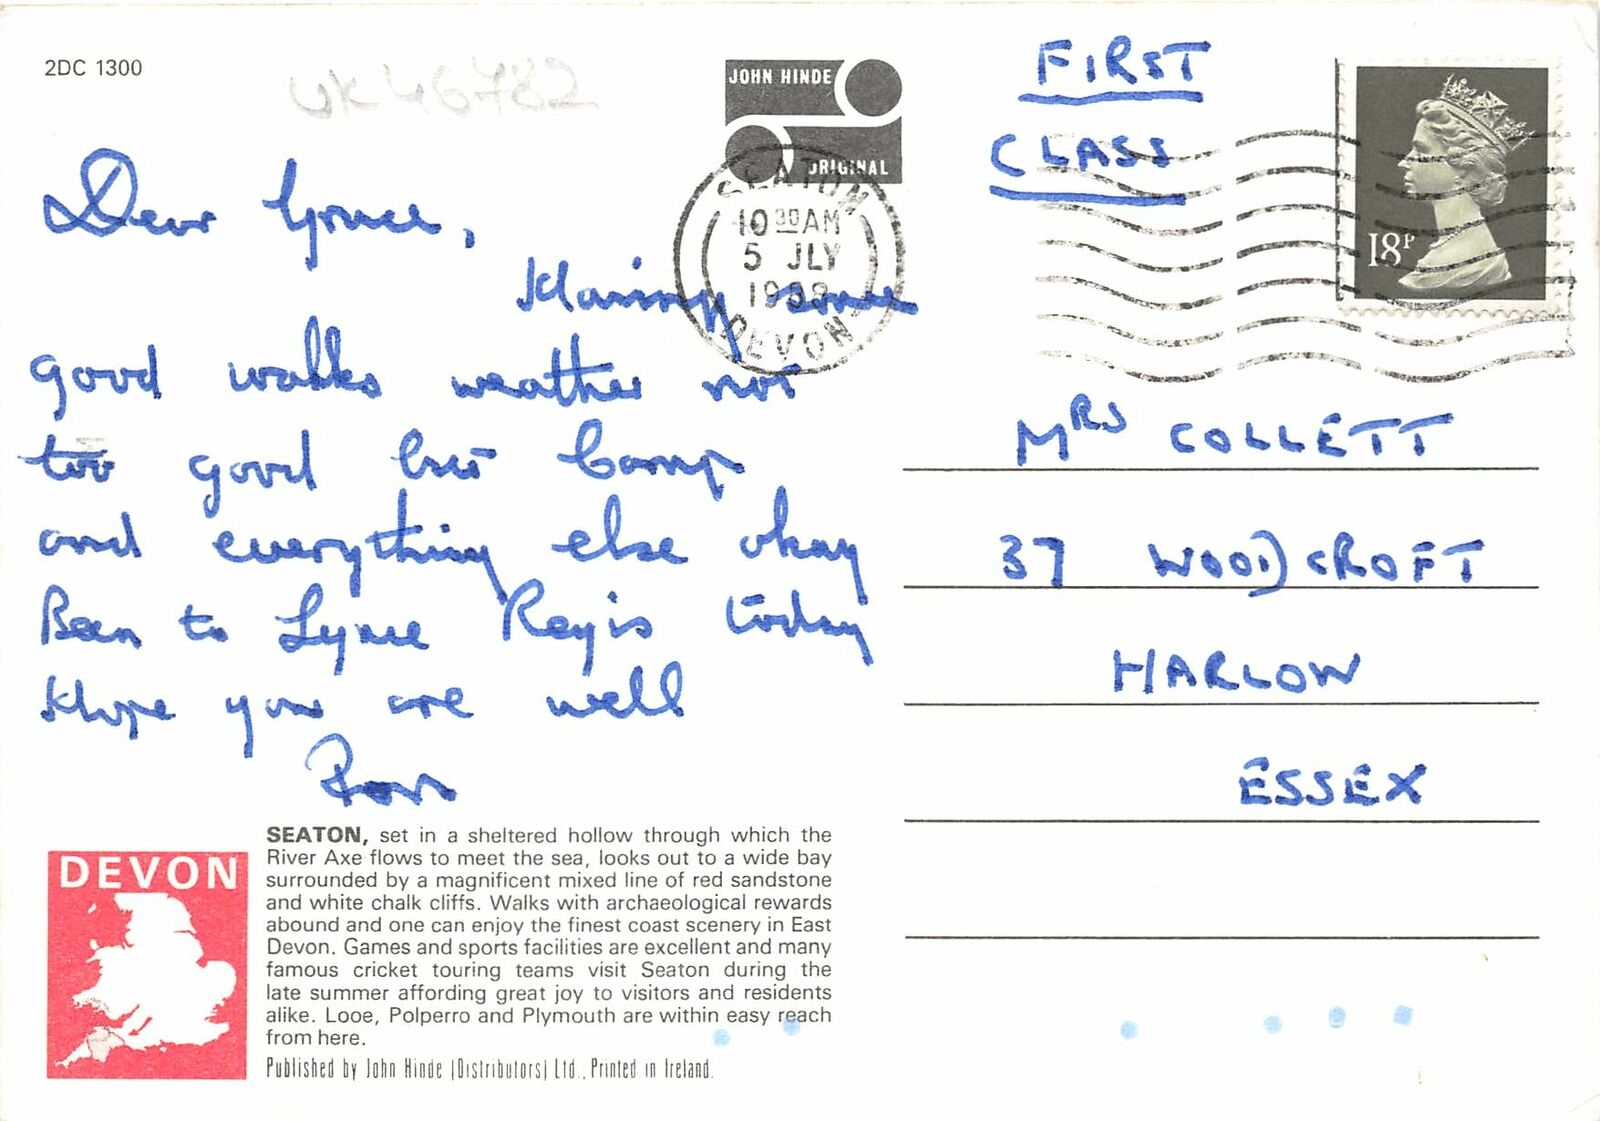 2DC 1300
UK46782
JOHN HINDE
ORIGINAL
FIRST
CLASS
SEATON
10 30 AM
5 JLY
DEVON
18P
Dear Grace,
Having some
good walks weather not
too good but Camp
and everything else okay
Been to Lyme Regis today
Hope you are well
MRS COLLETT
37 WOODCROFT
HARLOW
ESSEX
DEVON
SEATON, set in a sheltered hollow through which the
River Axe flows to meet the sea, looks out to a wide bay
surrounded by a magnificent mixed line of red sandstone
and white chalk cliffs. Walks with archaeological rewards
abound and one can enjoy the finest coast scenery in East
Devon. Games and sports facilities are excellent and many
famous cricket touring teams visit Seaton during the
late summer affording great joy to visitors and residents
alike. Looe, Polperro and Plymouth are within easy reach
from here.
Published by John Hinde (Distributors) Ltd., Printed in Ireland.